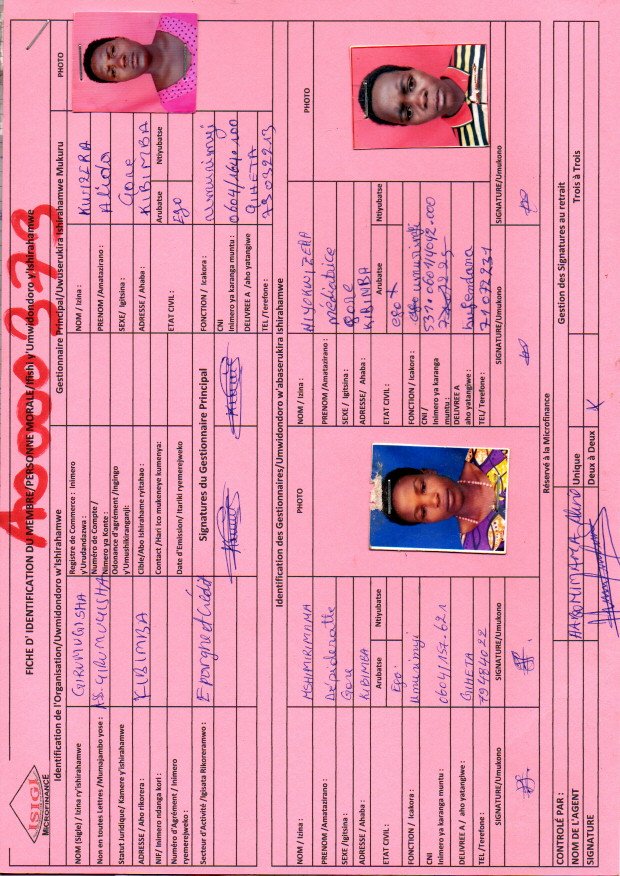 ISIGI
MICROFINANCE
FICHE D' IDENTIFICATION DU MEMBRE/PERSONNE MORALE/Ifishi y'Umwidondoro y'Ishirahamwe
Identification de l'Organisation/Uwmidondoro w'Ishirahamwe
NOM (Sigle) / Izina ry'ishirahamwe GIRUMUGISHA
Non en toutes Lettres /Mumajambo yose : AS. GIRUMUGISHA
Statut juridique/ Kamere y'ishirahamwe :
ADRESSE / Aho rikorera : KIBIMBA
NIF/ Inimero ndanga kori :
Numéro d'Agrément / Inimero
ryemerejweko :
Secteur d'Activité /Igisata Rikoreramwo : Epargne et Crédit
Registre de Commerce : nimero
y'Urudandazwa :
Numéro de Compte /
Nimero ya Konte :
Odonance d'agrément /Ingingo
y'Umushikiranganji:
Cible/Abo Ishirahame ryitahao :
Contact /Hari Ico mukeneye kumenya:
Date d'Emission/ Itariki ryemerejweko
Signatures du Gestionnaire Principal
Gestionnaire Principal/Uwuserukira Ishirahamwe Mukuru
PHOTO
NOM / Izina : KWIZERA
PRENOM /Amatazirano : Alida
SEXE/ Igitsina : Gore
ADRESSE / Ahaba : KIBIMBA
Arubatse Ntiyubatse
ETAT CIVIL : Ego
FONCTION / Icakora : umurimyi
CNI
Inimero ya karanga muntu : 0604/1640.100
DELIVREE A /aho yatangiwe GIHETA
TEL /Terefone : 79032213
Identification des Gestionnaires/Umwidondoro w'abaserukira ishirahamwe
PHOTO
NOM / Izina : NSHIMIRIMANA
PRENOM /Amatazirano :
SEXE /Igitsina : Gore
ADRESSE / Ahaba : KIBIMBA
Arubatse Ntiyubatse
ETAT CIVIL : Ego
FONCTION / Icakora : umurimyi
CNI
Inimero ya karanga muntu : 0604/157.621
DELIVREE A / aho yatangiwe : GIHETA
TEL /Terefone : 79484022
SIGNATURE/Umukono SIGNATURE/Umukono
PHOTO
NOM / Izina : NIYONKWIZERA
PRENOM /Amatazirano : Médiatrice
SEXE / Igitsina : gore
ADRESSE/ Ahaba : KIBIMBA
Arubatse Ntiyubatse
ETAT CIVIL : ego
FONCTION / Icakora : umurimyi
CNI /
Inimero ya karanga
muntu :
DELIVREE A
aho yatangiwe :
TEL/ Terefone : 71072231
SIGNATURE/Umukono SIGNATURE/Umukono
Réservé à la Microfinance
CONTROLÉ PAR :
NOM DE L'AGENT
SIGNATURE
Gestion des Signatures au retrait
Unique
Deux à Deux X
Trois à Trois